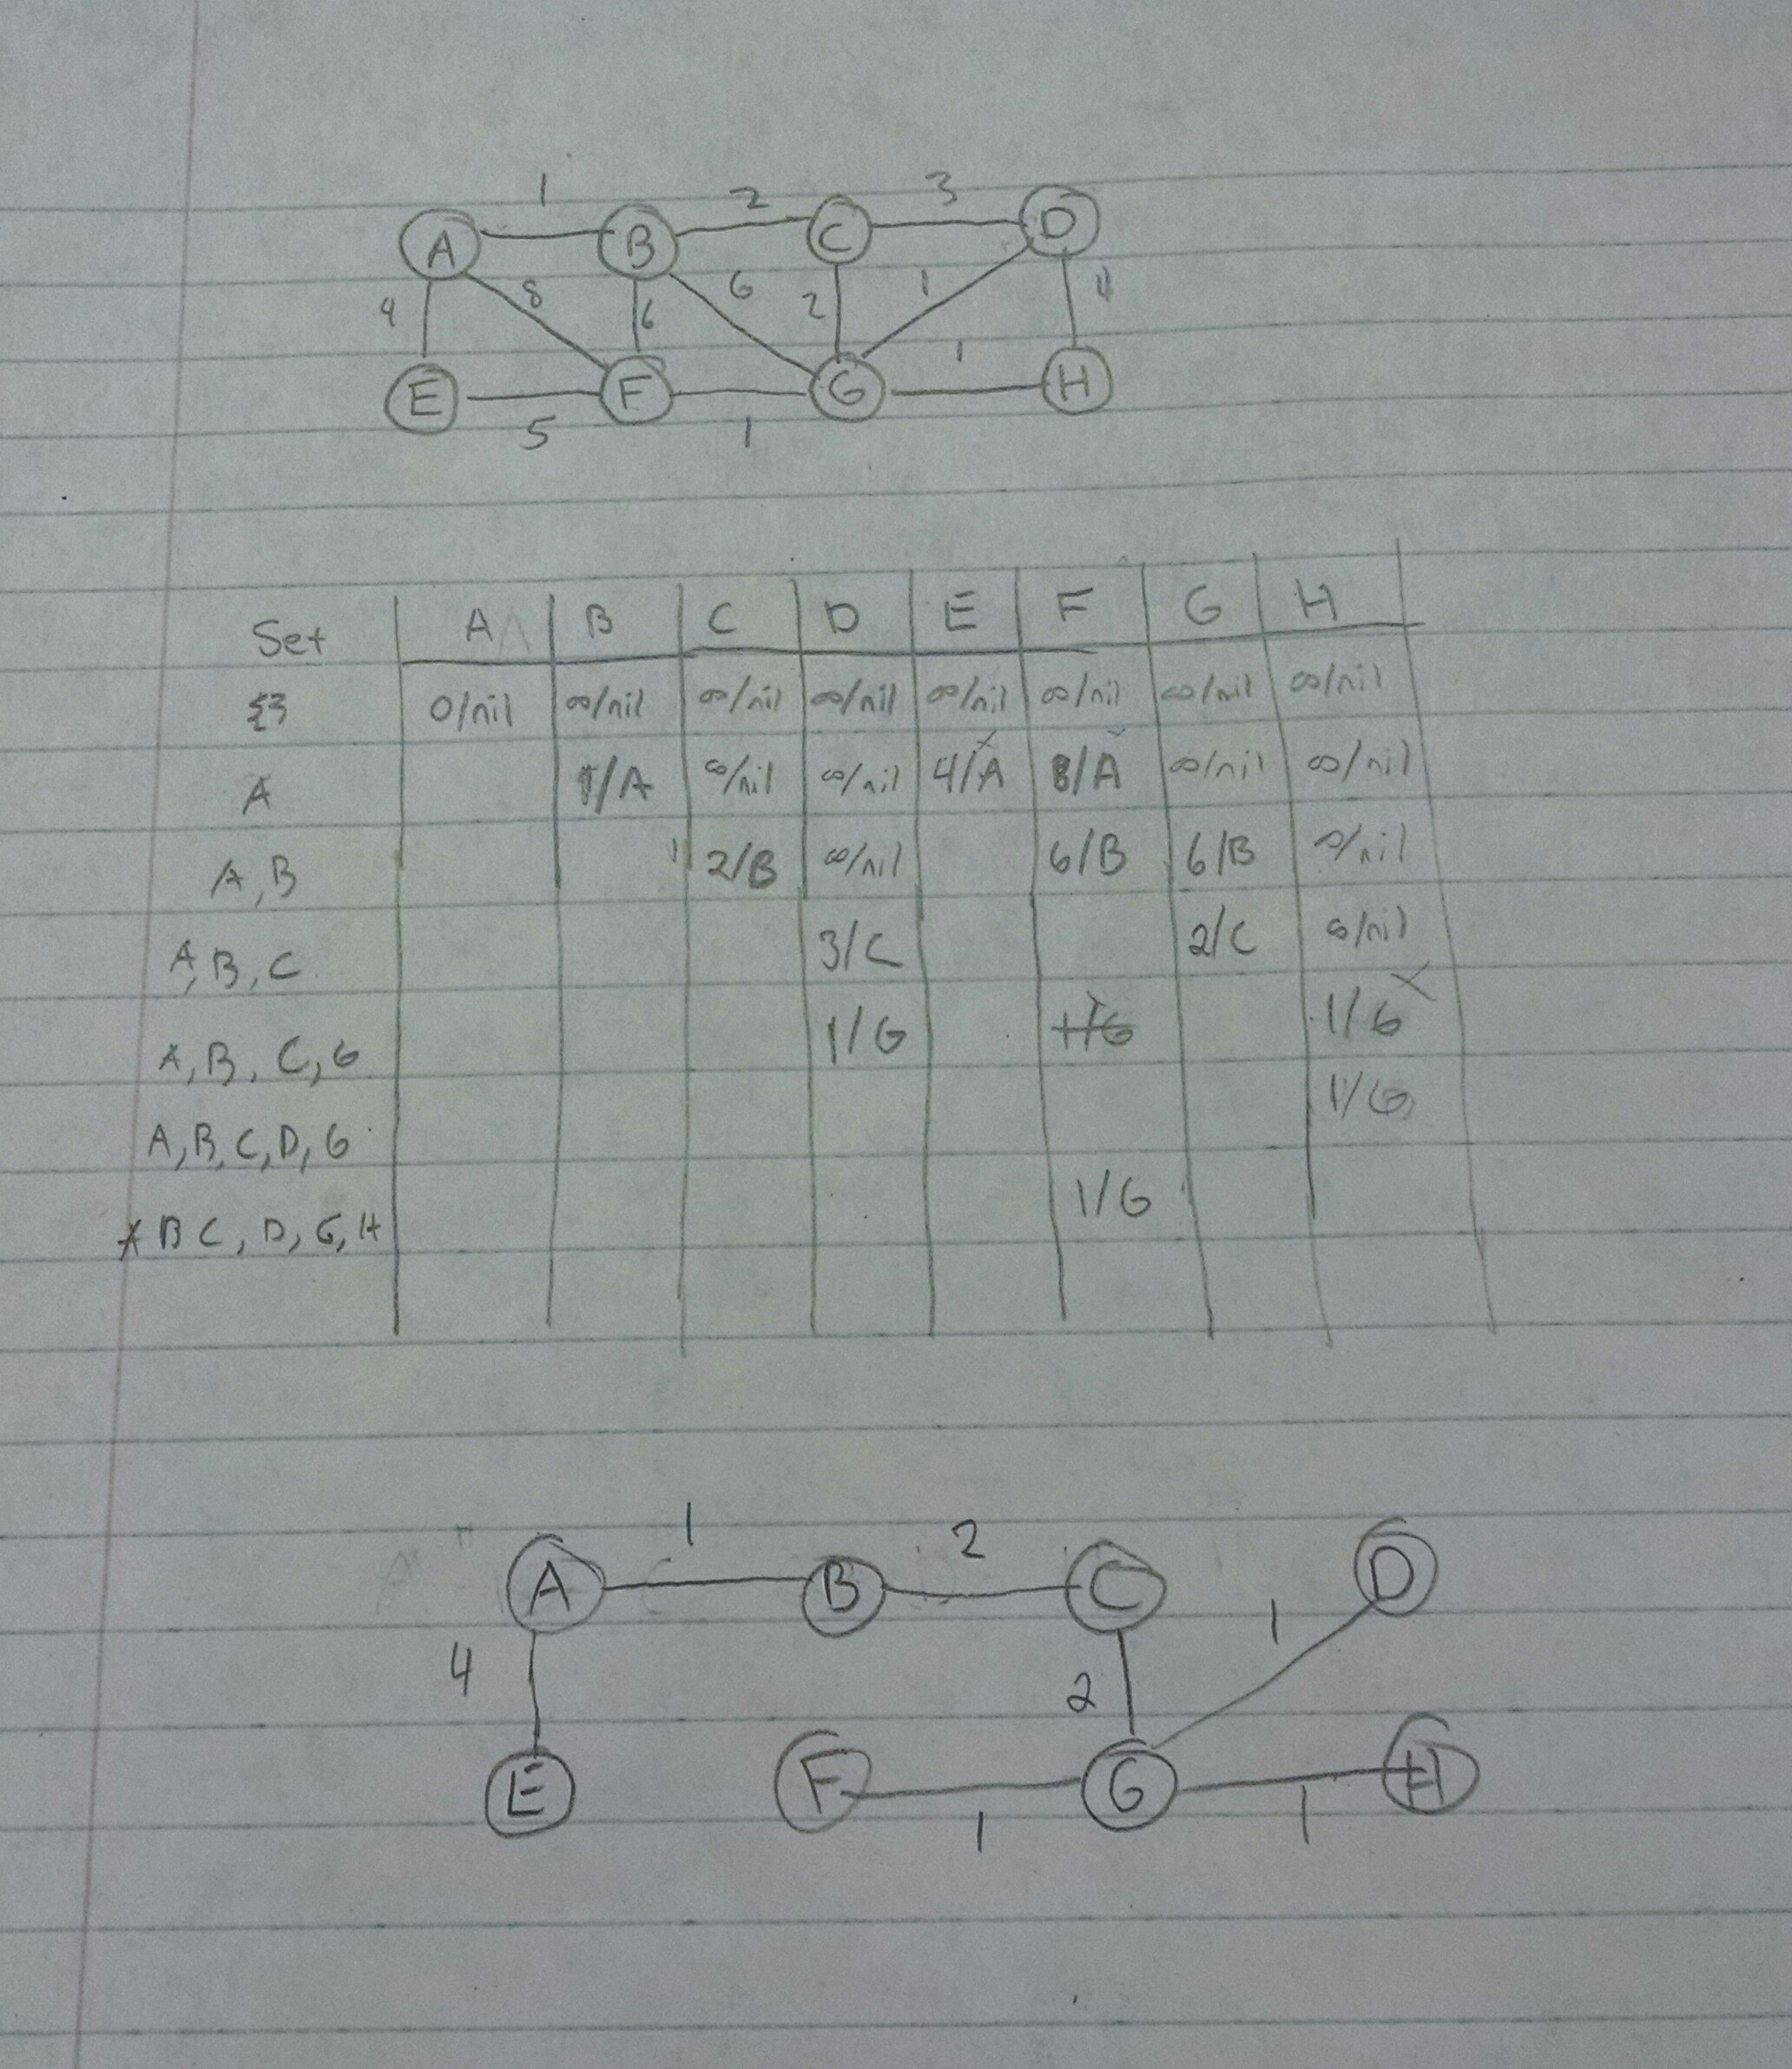 1 2 3
A B C D
4 8 6 6 2 1 4
1
E F G H
5 1
Set A B C D E F G H
{} 0/nil ∞/nil ∞/nil ∞/nil ∞/nil ∞/nil ∞/nil ∞/nil
A 1/A ∞/nil ∞/nil 4/A 8/A ∞/nil ∞/nil
A,B 2/B ∞/nil 6/B 6/B ∞/nil
A,B,C 3/C 2/C ∞/nil
A,B,C,G 1/G 1/G 1/G
A,B,C,D,G 1/G
A B C, D, G, H 1/G
1 2
A B C D
1
4 2
E F G H
1 1